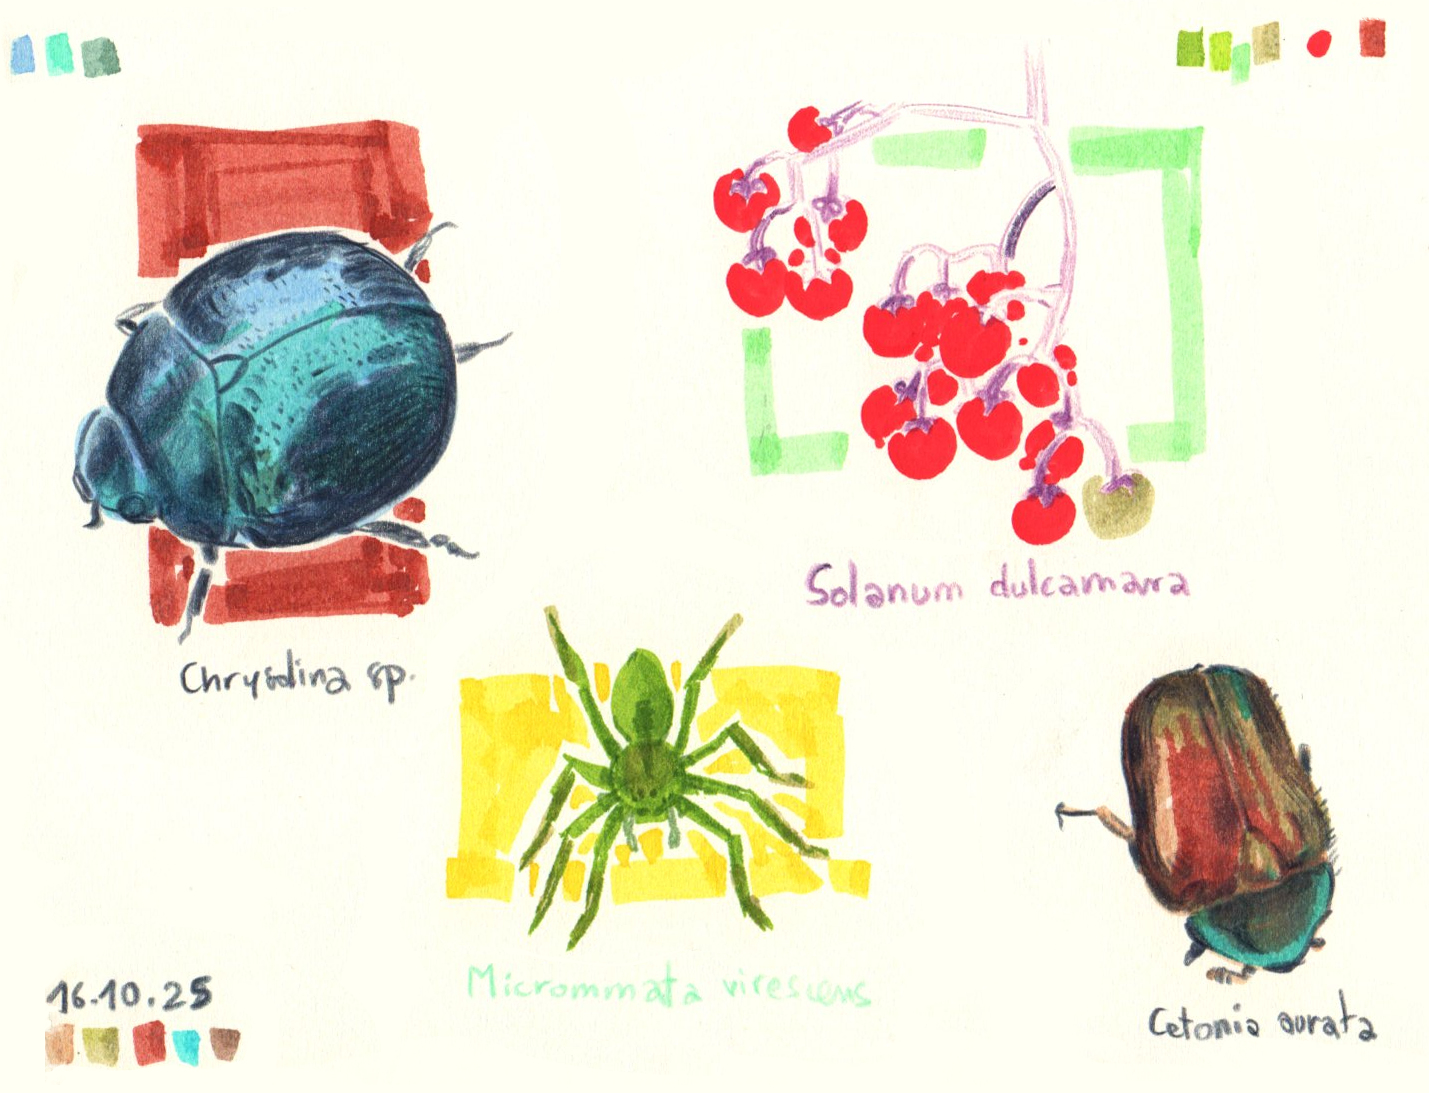 Solanum dulcamara
Chrysolina sp.
Micrommata virescens
16.10.25
Cetonia aurata